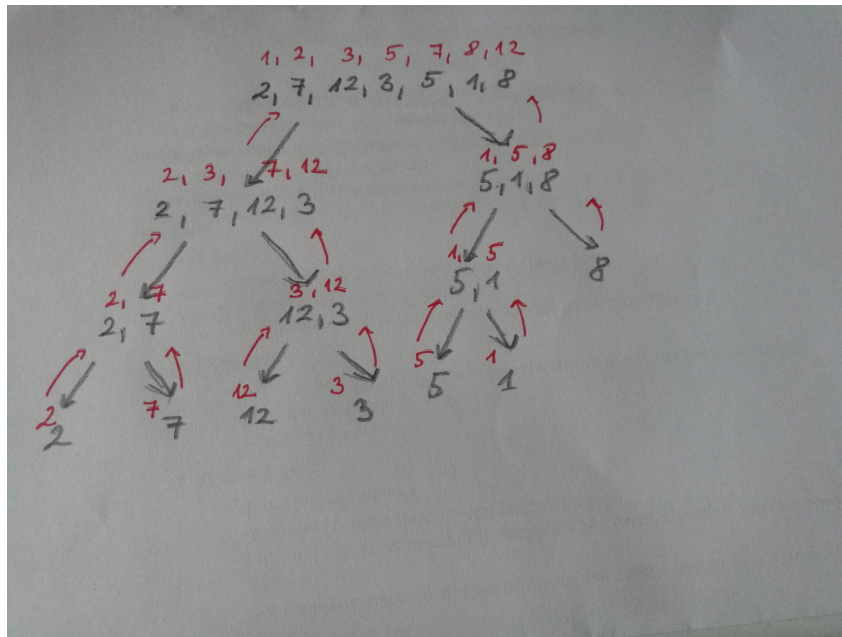 1, 2, 3, 5, 7, 8, 12
2, 7, 12, 3, 5, 1, 8
2, 3, 7, 12
2, 7, 12, 3
1, 5, 8
5, 1, 8
2, 7
2, 7
3, 12
12, 3
1, 5
5, 1
8
2
2
7
7
12
12
3
3
5
5
1
1